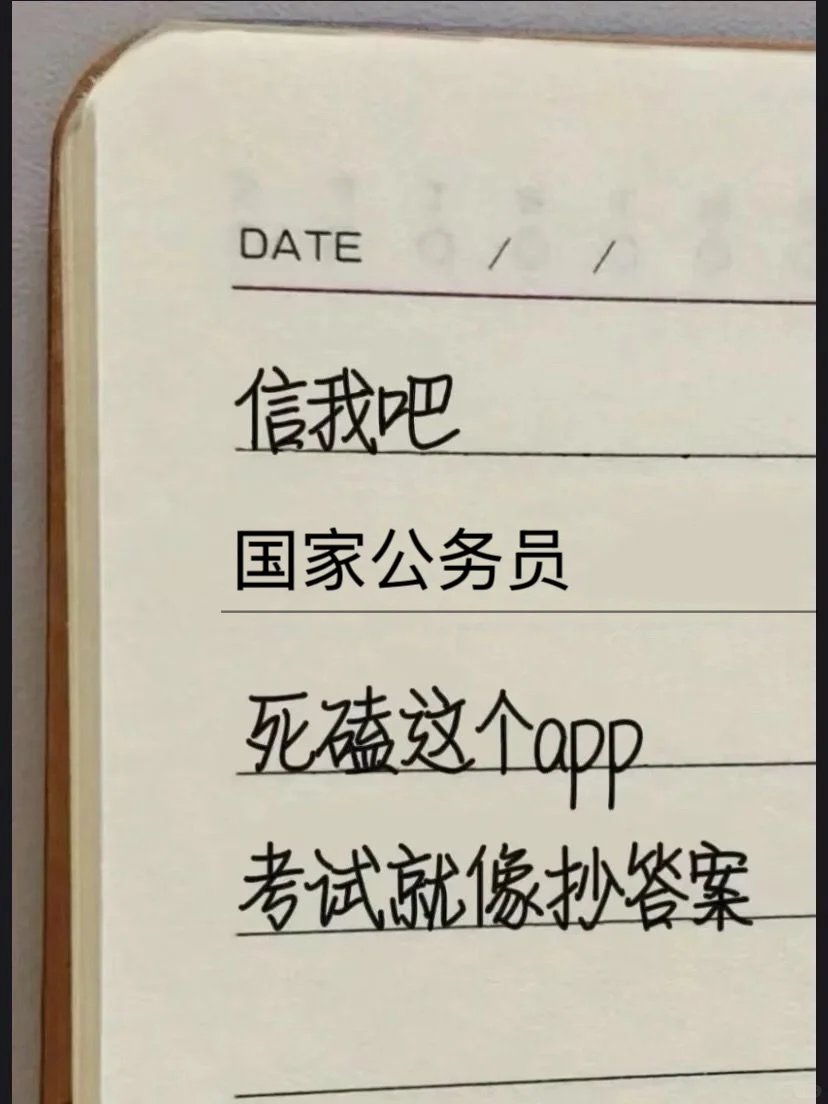 DATE / /
信我吧
国家公务员
死磕这个app
考试就像抄答案